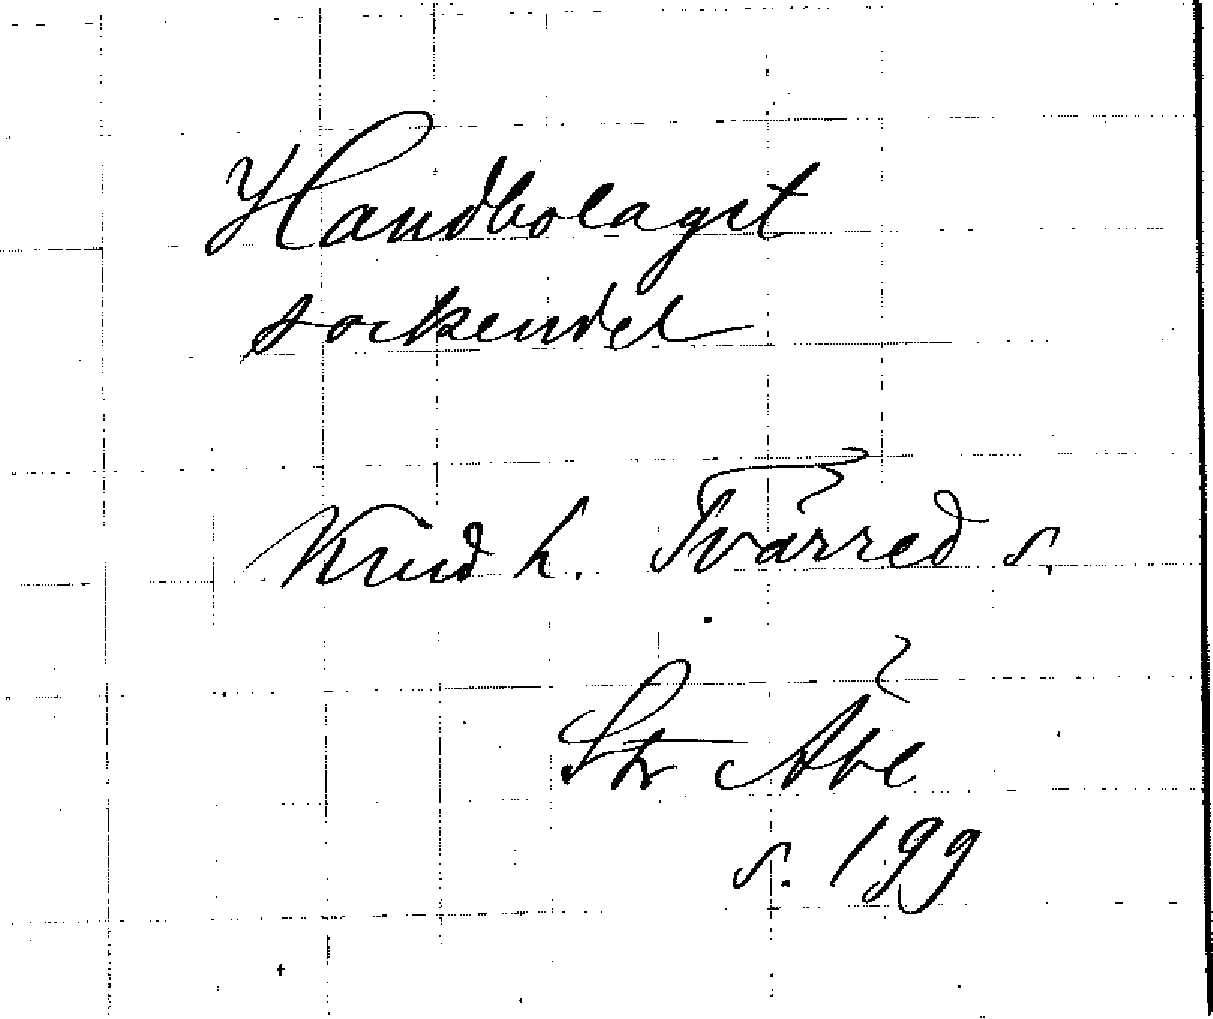 Handbolaget
sockendel
Kind h. Tvärred s.
Str Åbe
s. 199